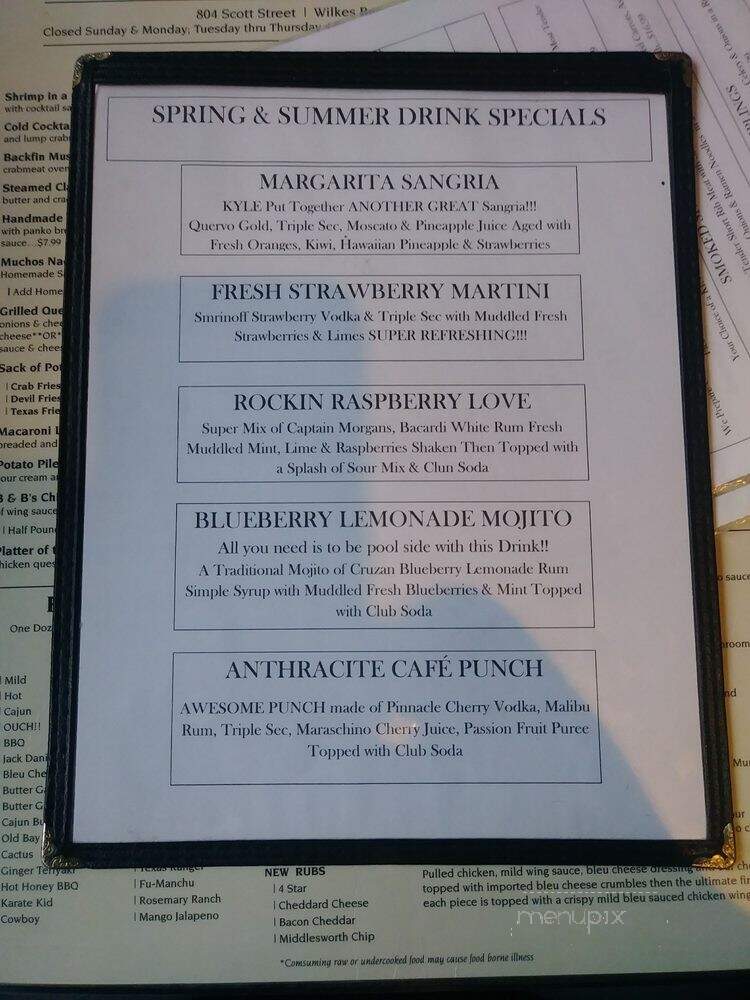 804 Scott Street | Wilkes
Closed Sunday & Monday; Tuesday thru Thursday
SPRING & SUMMER DRINK SPECIALS
MARGARITA SANGRIA
KYLE Put Together ANOTHER GREAT Sangria!!!
Quervo Gold, Triple Sec, Moscato & Pineapple Juice Aged with
Fresh Oranges, Kiwi, Hawaiian Pineapple & Strawberries
FRESH STRAWBERRY MARTINI
Smrinoff Strawberry Vodka & Triple Sec with Muddled Fresh
Strawberries & Limes SUPER REFRESHING!!!
ROCKIN RASPBERRY LOVE
Super Mix of Captain Morgans, Bacardi White Rum Fresh
Muddled Mint, Lime & Raspberries Shaken Then Topped with
a Splash of Sour Mix & Clun Soda
BLUEBERRY LEMONADE MOJITO
All you need is to be pool side with this Drink!!
A Traditional Mojito of Cruzan Blueberry Lemonade Rum
Simple Syrup with Muddled Fresh Blueberries & Mint Topped
with Club Soda
ANTHRACITE CAFÉ PUNCH
AWESOME PUNCH made of Pinnacle Cherry Vodka, Malibu
Rum, Triple Sec, Maraschino Cherry Juice, Passion Fruit Puree
Topped with Club Soda
Shrimp in a
with cocktail
Cold
and lump
Backfin
crabmeat
Steamed
butter and
Handmade
with panko
sauce...$7.99
Muchos
Homemade
| Add
Grilled
onions &
cheese**OR*
sauce &
Sack of
| Crab Fries
| Devil Fries
| Texas
Macaroni
breaded and
Potato
sour cream
B & B's
of wing sauce
| Half
Platter of
chicken
One
| Mild
| Hot
| Cajun
| OUCH!!
BBQ
Jack
Bleu
Butter
Butter
Cajun
Old Bay
Cactus
Ginger Teriyaki
Hot Honey BBQ
Karate Kid
Cowboy
| Texas Ranger
| Fu-Manchu
| Rosemary Ranch
| Mango Jalapeno
NEW RUBS
| 4 Star
| Cheddard Cheese
| Bacon Cheddar
| Middlesworth Chip
Pulled chicken, mild wing sauce, bleu cheese dressing
topped with imported bleu cheese crumbles then the ultimate
each piece is topped with a crispy mild bleu sauced chicken
*Comsuming raw or undercooked food may cause food borne illness
menupix